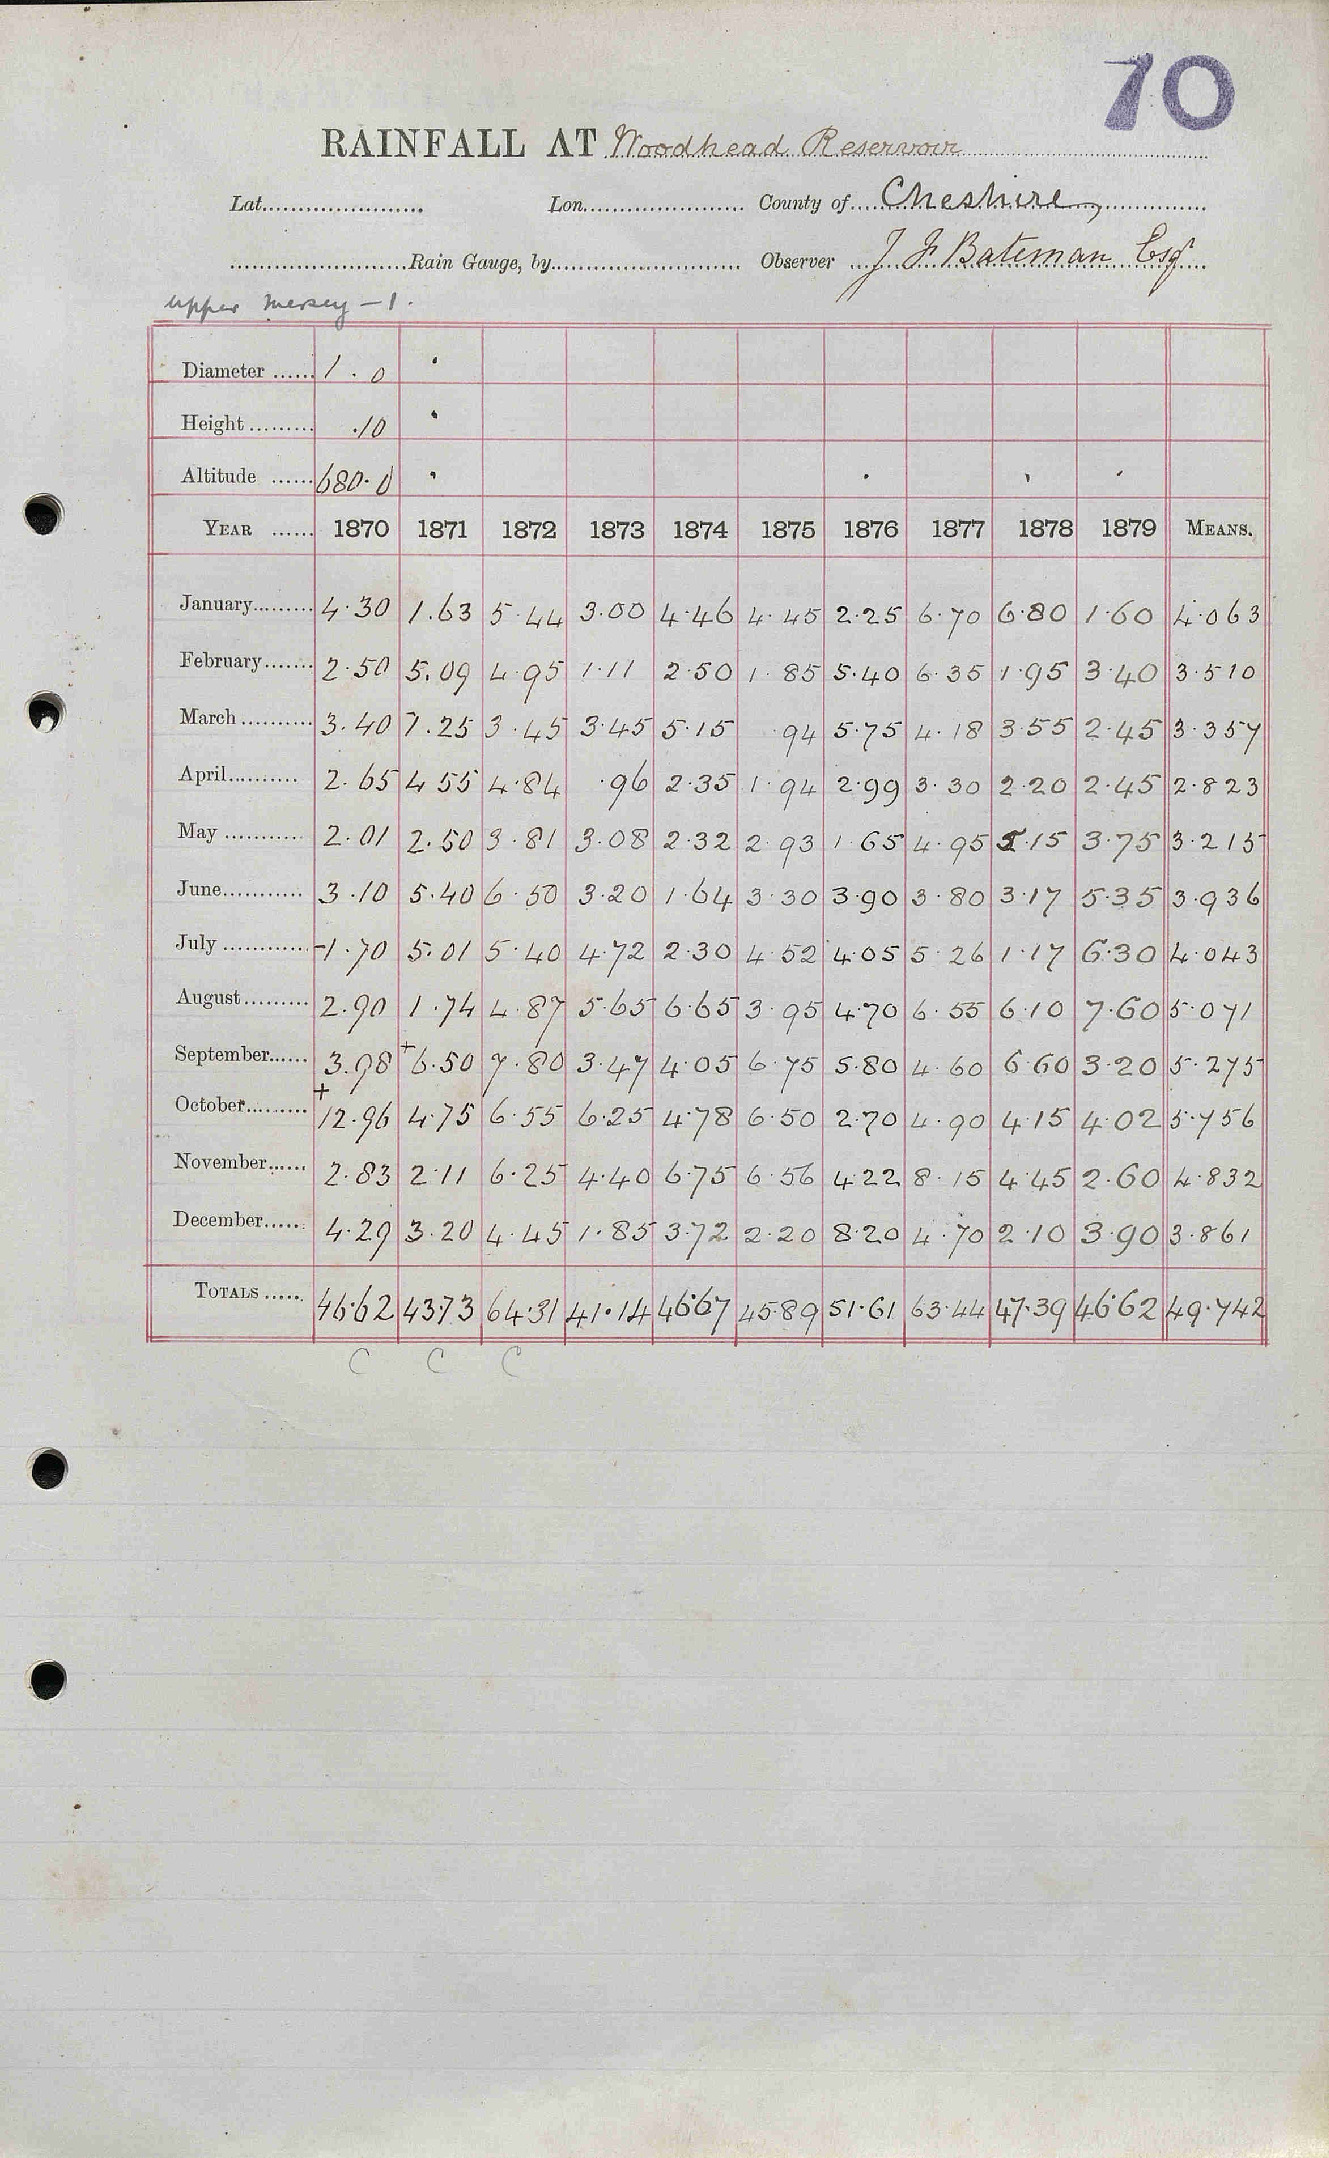 70
RAINFALL AT Woodhead Reservoir
Lat. Lon. County of Cheshire
Rain Gauge, by Observer J F Bateman Esq
Upper Mersey – 1.
Diameter 1.0
Height .10
Altitude 680.0
YEAR 1870 1871 1872 1873 1874 1875 1876 1877 1878 1879 MEANS.
January 4.30 1.63 5.44 3.00 4.46 4.45 2.25 6.70 6.80 1.60 4.063
February 2.50 5.09 4.95 1.11 2.50 1.85 5.40 6.35 1.95 3.40 3.510
March 3.40 7.25 3.45 3.45 5.15 .94 5.75 4.18 3.55 2.45 3.357
April 2.65 4.55 4.84 .96 2.35 1.94 2.99 3.30 2.20 2.45 2.823
May 2.01 2.50 3.81 3.08 2.32 2.93 1.65 4.95 5.15 3.75 3.215
June 3.10 5.40 6.50 3.20 1.64 3.30 3.90 3.80 3.17 5.35 3.936
July 1.70 5.01 5.40 4.72 2.30 4.52 4.05 5.26 1.17 6.30 4.043
August 2.90 1.74 4.87 5.65 6.65 3.95 4.70 6.55 6.10 7.60 5.071
September 3.98 +6.50 7.80 3.47 4.05 6.75 5.80 4.60 6.60 3.20 5.275
October +12.96 4.75 6.55 6.25 4.78 6.50 2.70 4.90 4.15 4.02 5.756
November 2.83 2.11 6.25 4.40 6.75 6.56 4.22 8.15 4.45 2.60 4.832
December 4.29 3.20 4.45 1.85 3.72 2.20 8.20 4.70 2.10 3.90 3.861
TOTALS 46.62 43.73 64.31 41.14 46.67 45.89 51.61 63.44 47.39 46.62 49.742
C C C